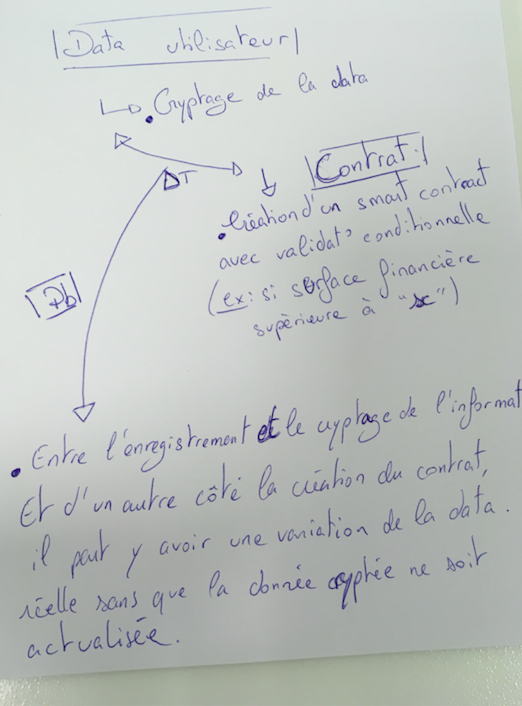 Data utilisateur
Cryptage de la data
ΔT
Contrat
Création d'un smart contract
avec validat° conditionnelle
(ex: si surface financière
supérieure à "x")
Pb
Entre l'enregistrement et le cryptage de l'informat
Et d'un autre côté la création du contrat,
il peut y avoir une variation de la data.
réelle sans que la donnée cryptée ne soit
actualisée.